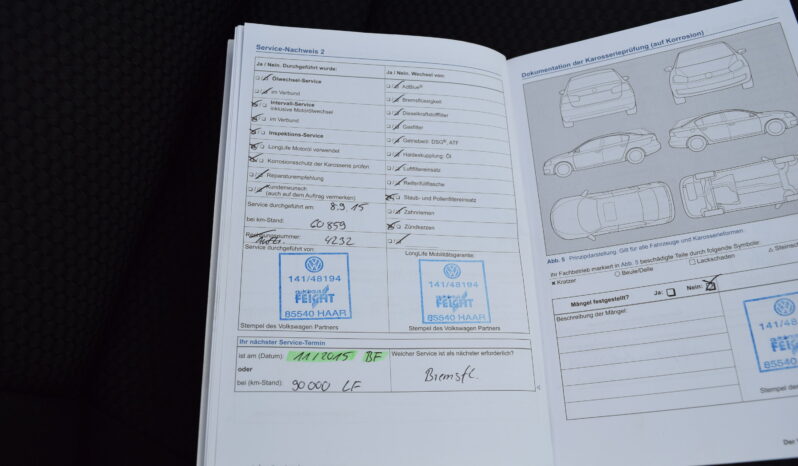 Service-Nachweis 2
Ja / Nein. Durchgeführt wurde:
Ölwechsel-Service
im Verbund
Intervall-Service
inklusive Motorölwechsel
im Verbund
Inspektions-Service
LongLife Motoröl verwendet
Korrosionsschutz der Karosserie prüfen
Reparaturempfehlung
Kundenwunsch
(auch auf dem Auftrag vermerken)
Service durchgeführt am: 8.9.15
bei km-Stand: 60859
4232
Service durchgeführt von:
141/48194
FEICHT
85540 HAAR
Stempel des Volkswagen Partners
Ja / Nein. Wechsel von:
AdBlue®
Bremsflüssigkeit
Dieselkraftstofffilter
Gasfilter
Getriebeöl: DSG®, ATF
Haldexkupplung: Öl
Luftfiltereinsatz
Reifenfüllflasche
Staub- und Pollenfiltereinsatz
Zahnriemen
Zündkerzen
LongLife Mobilitätsgarantie
141/48194
FEICHT
85540 HAAR
Stempel des Volkswagen Partners
Ihr nächster Service-Termin
ist am (Datum): 11/2015 BF
oder
bei (km-Stand): 90000 LF
Welcher Service ist als nächster erforderlich?
Bremsfl.
Dokumentation der Karosserieprüfung (auf Korrosion)
Abb. 5 Prinzipdarstellung. Gilt für alle Fahrzeuge und Karosserieformen.
Ihr Fachbetrieb markiert in Abb. 5 beschädigte Teile durch folgende Symbole:
Kratzer
Beule/Delle
Lackschaden
Mängel festgestellt?
Ja:
Nein:
Beschreibung der Mängel:
141/48
FEI
85540
Stempel des